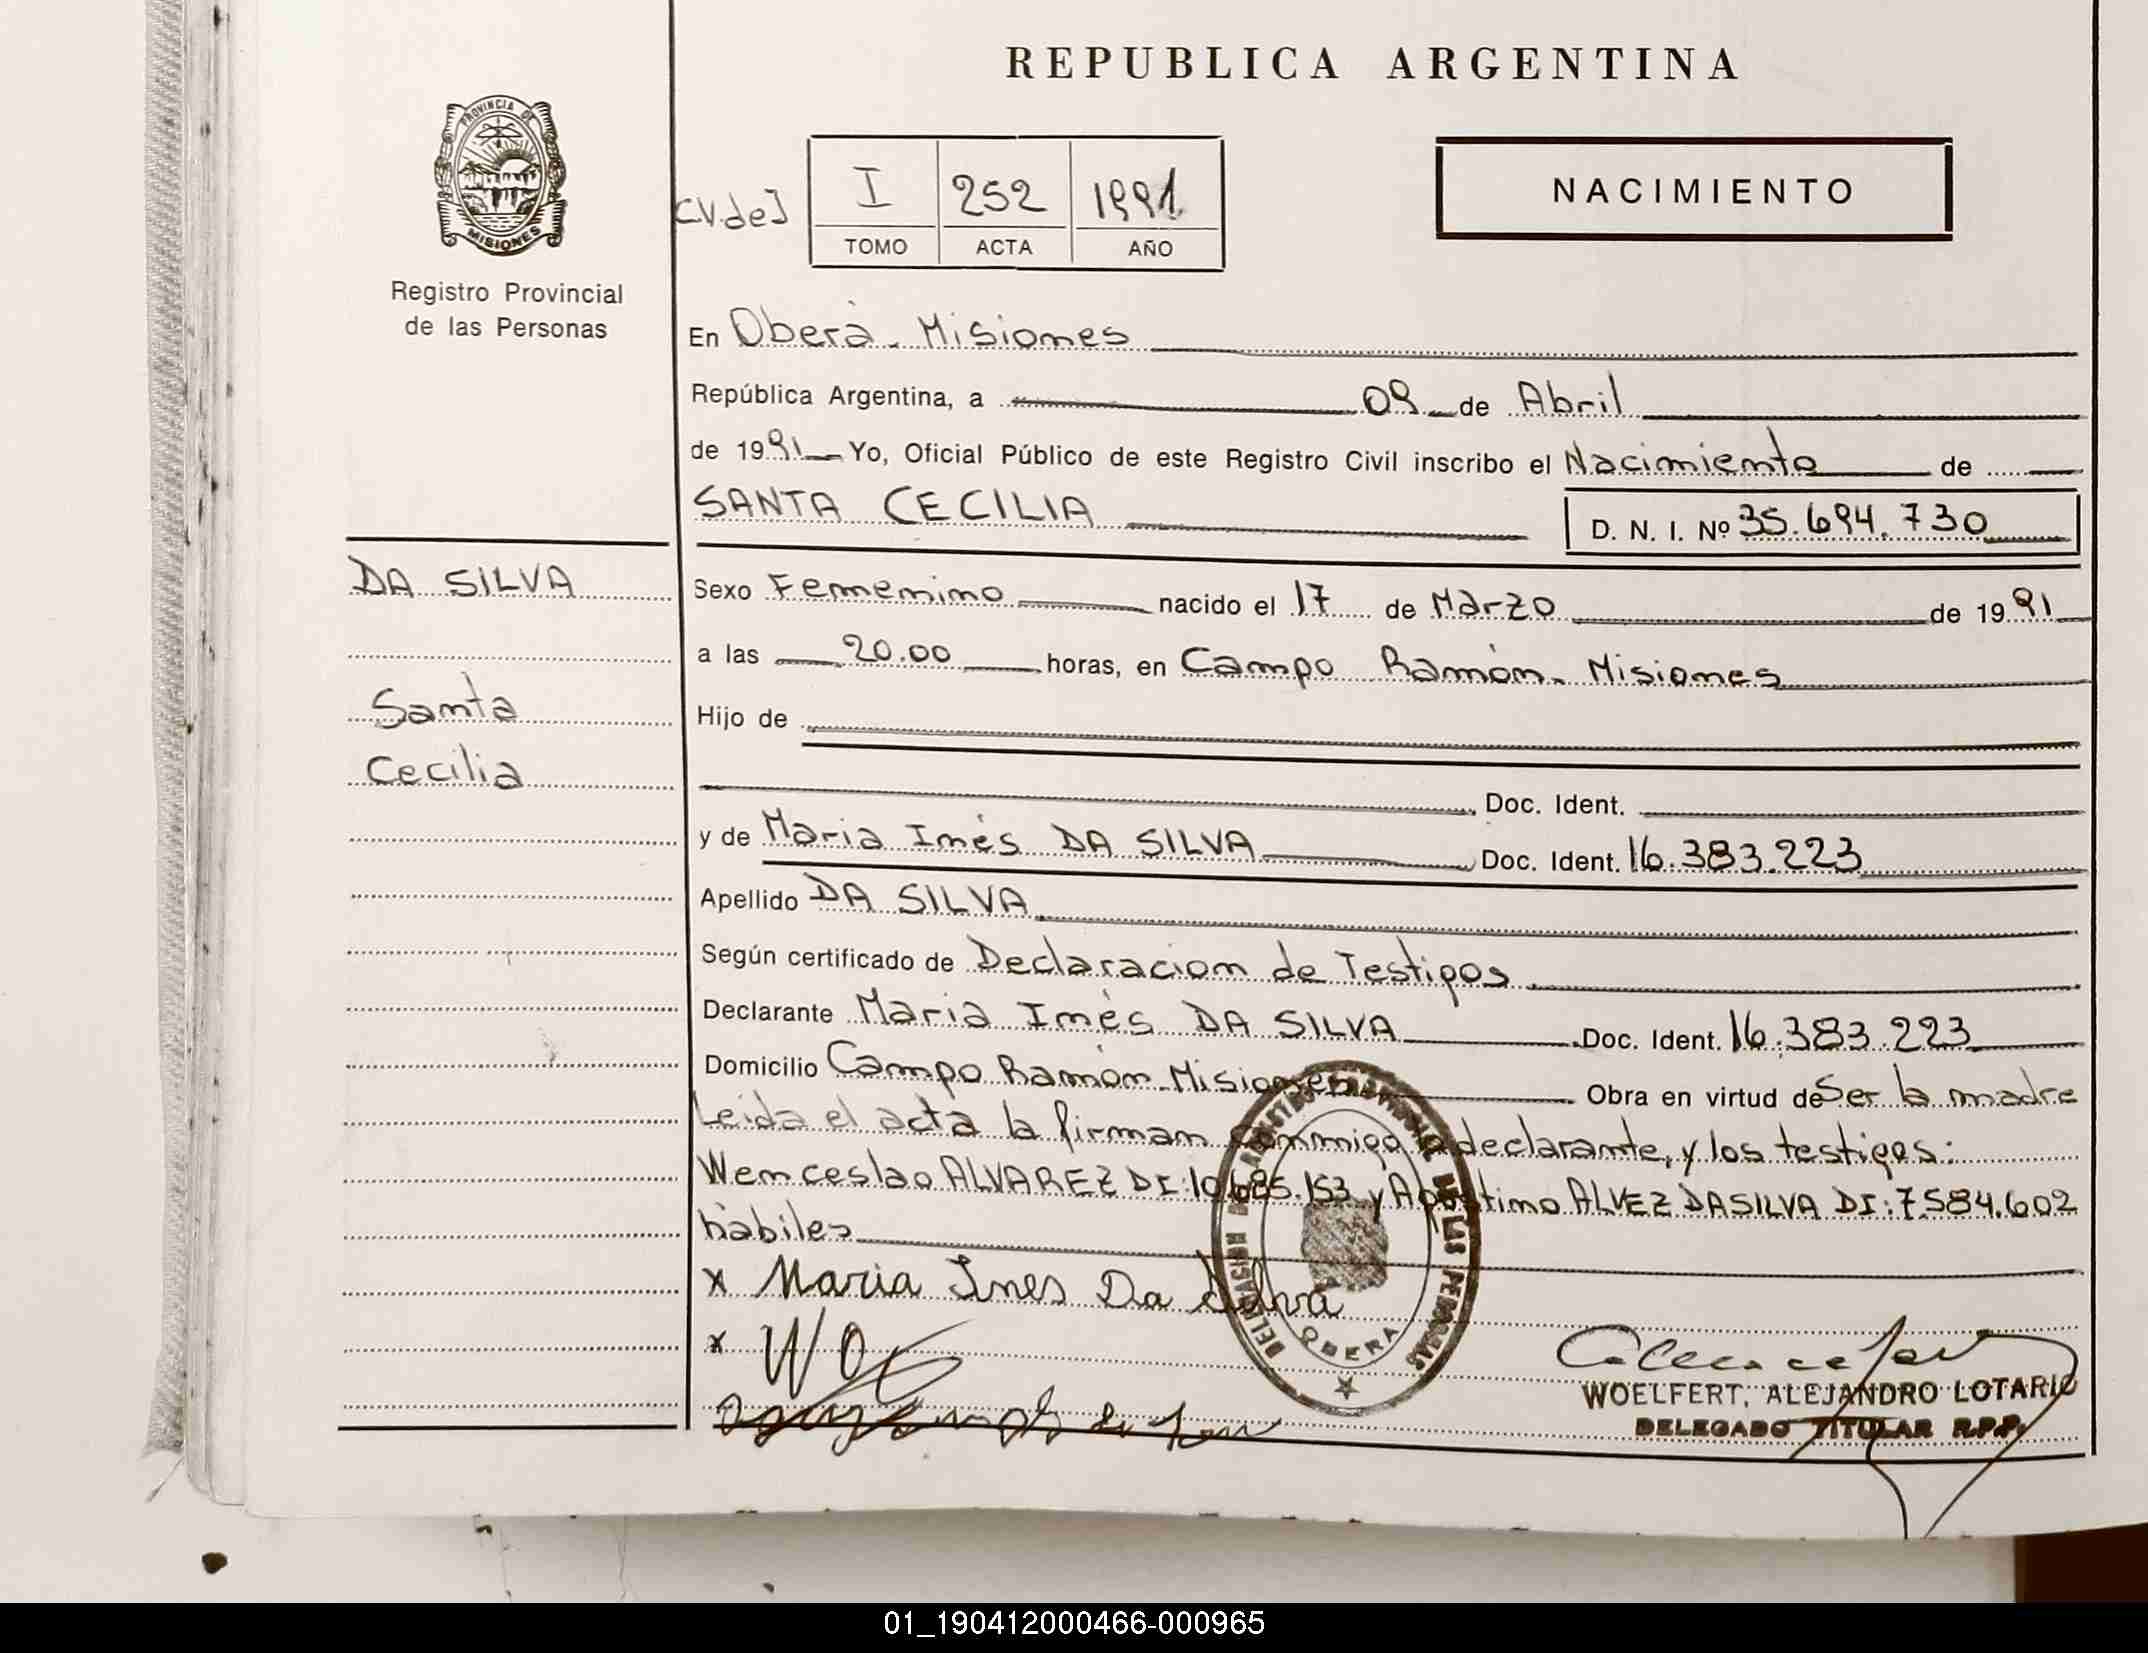 REPUBLICA ARGENTINA
PROVINCIA DE
MISIONES
Registro Provincial
de las Personas
CV.de]
I 252 1991
TOMO ACTA AÑO
NACIMIENTO
En Oberá - Misiones
República Argentina, a 09 de Abril
de 1991 Yo, Oficial Público de este Registro Civil inscribo el Nacimiento de
SANTA CECILIA
D. N. I. Nº 35.694.730
DA SILVA
Santa
Cecilia
Sexo Femenino nacido el 17 de Marzo de 1991
a las 20.00 horas, en Campo Ramón - Misiones
Hijo de
Doc. Ident.
y de Maria Inés DA SILVA Doc. Ident. 16.383.223
Apellido DA SILVA
Según certificado de Declaracion de Testigos
Declarante Maria Inés DA SILVA Doc. Ident. 16.383.223
Domicilio Campo Ramón - Misiones Obra en virtud de Ser la madre
Leida el acta la firman conmigo la declarante, y los testigos:
Wenceslao ALVAREZ DI: 10.685.153 y Agostimo ALVEZ DASILVA DI: 7.584.602
hábiles
x Maria Ines Da Silva
x
DELEGACION REGISTRO PROVINCIAL DE LAS PERSONAS
OBERA
WOELFERT, ALEJANDRO LOTARIO
DELEGADO TITULAR R.P.P.
01_190412000466-000965